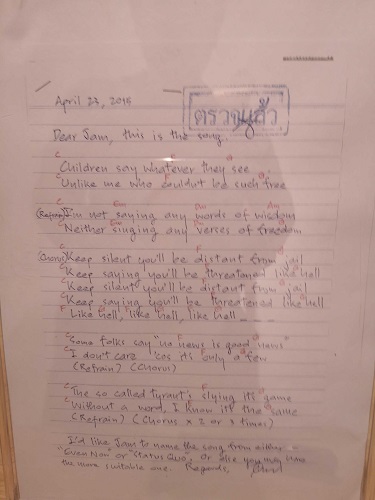 April 23, 2015
ตรวจแล้ว
Dear Jam, this is the song.
C F G
Children say whatever they see
C F G
Unlike me who couldn't be such free
C Em Dm Am
(Refrain) I'm not saying any words of wisdom
Em
Neither singing any verses of freedom
C F G
(Chorus) Keep silent you'll be distant from jail
Keep saying you'll be threatened like hell
Keep silent you'll be distant from jail
Keep saying you'll be threatened like hell
Like hell, like hell, like hell ....
Some folks say "no news is good news"
I don't care 'cos it's only a few
(Refrain) (Chorus)
The so called tyrant's flying its game
Without a word, I know it's the same
(Refrain) (Chorus x 2 or 3 times)
I'd like Jam to name the song from either
"Even Now" or "Status Quo", or else you may have
the more suitable one. Regards,